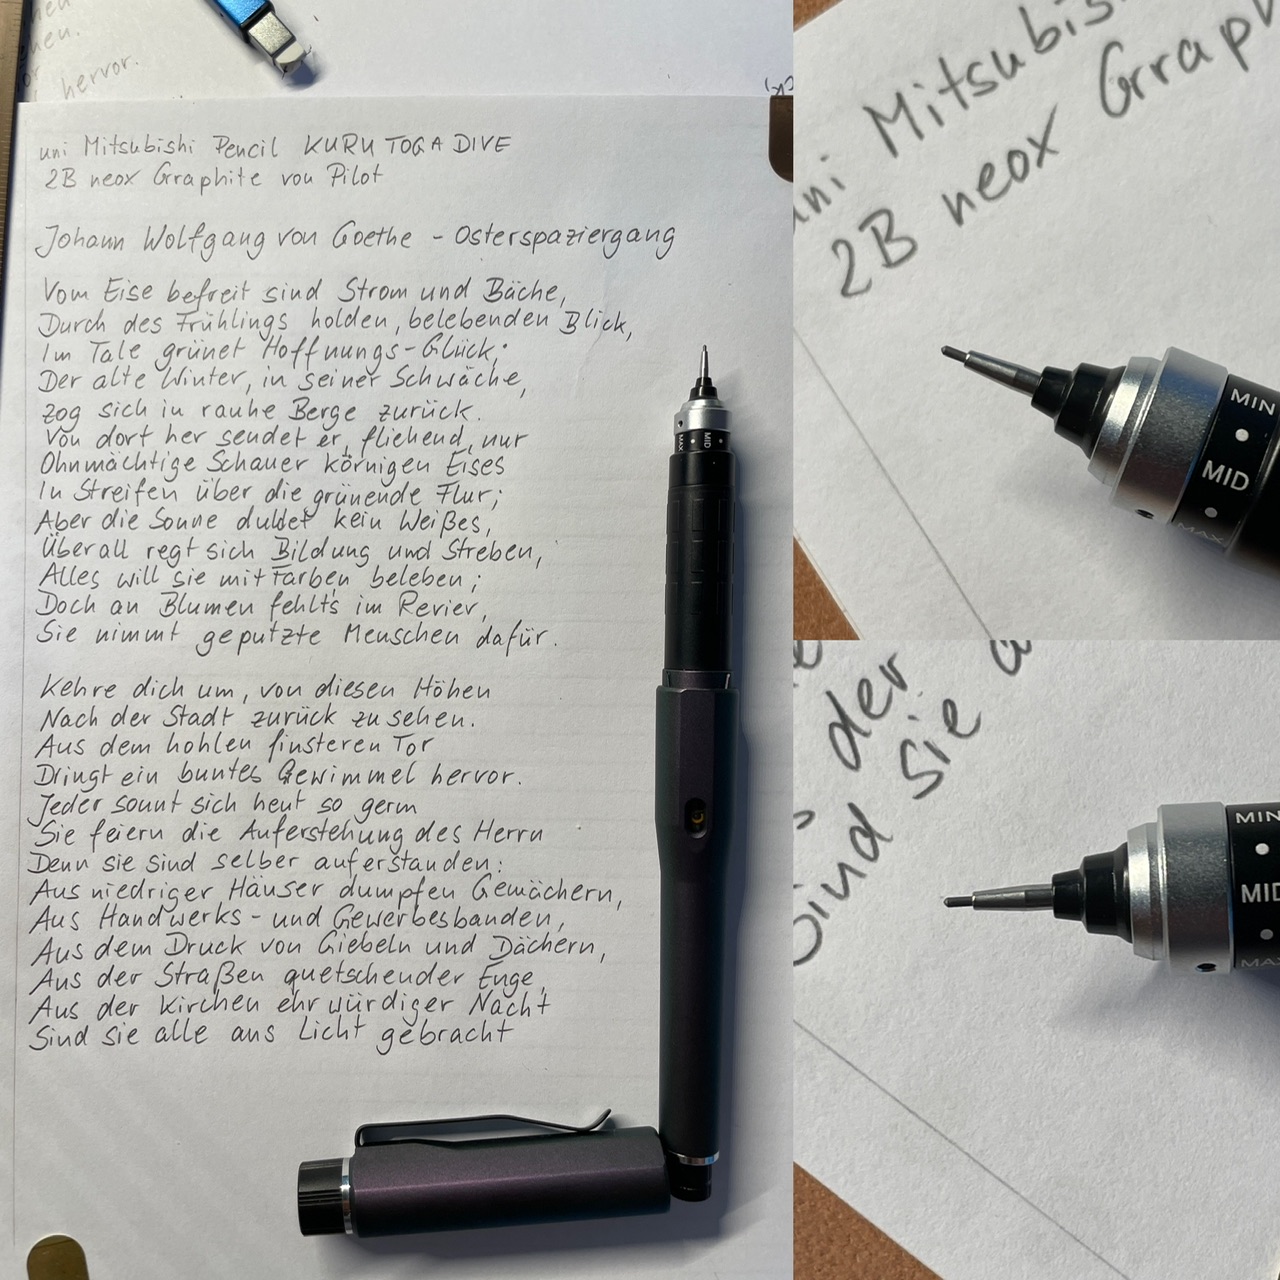 hervor.
uni Mitsubishi Pencil KURU TOGA DIVE
2B neox Graphite von Pilot
Johann Wolfgang von Goethe - Osterspaziergang
Vom Eise befreit sind Strom und Bäche,
Durch des Frühlings holden, belebenden Blick,
Im Tale grünet Hoffnungs-Glück;
Der alte Winter, in seiner Schwäche,
Zog sich in rauhe Berge zurück.
Von dort her sendet er, fliehend, nur
Ohnmächtige Schauer körnigen Eises
In Streifen über die grünende Flur;
Aber die Sonne duldet kein Weißes,
Überall regt sich Bildung und Streben,
Alles will sie mit Farben beleben;
Doch an Blumen fehlts im Revier,
Sie nimmt geputzte Menschen dafür.
Kehre dich um, von diesen Höhen
Nach der Stadt zurück zu sehen.
Aus dem hohlen finsteren Tor
Dringt ein buntes Gewimmel hervor.
Jeder sonnt sich heut so germ
Sie feiern die Auferstehung des Herrn
Denn sie sind selber auferstanden:
Aus niedriger Häuser dumpfen Gemächern,
Aus Handwerks- und Gewerbesbanden,
Aus dem Druck von Giebeln und Dächern,
Aus der Straßen quetschender Enge,
Aus der Kirchen ehrwürdiger Nacht
Sind sie alle ans Licht gebracht
MAX MID
uni Mitsubis
2B neox Graph
MIN
MID
MAX
der
Sind sie a
MIN
MID
MAX